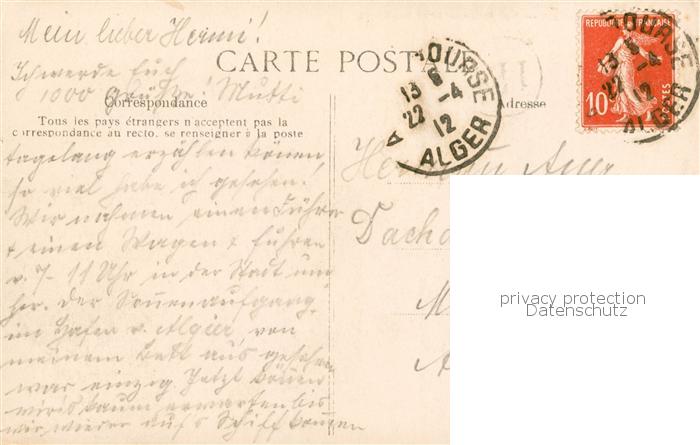 Mein lieber Heini!
CARTE POSTALE
Ich werde Euch
1000 Grüsse! Mutti
Correspondance
Adresse
Tous les pays étrangers n'acceptent pas la
correspondance au recto, se renseigner à la poste
tagelang erzählen können,
so viel habe ich gesehen.
Wir nahmen einen Führer
+ einen Wagen + fuhren
v. 7-11 Uhr in der Stadt um
her. Der Sonnenaufgang
im Hafen v. Algier, von
meinem Bett aus gesehen
war einzig. Jetzt können
wir's kaum erwarten bis
wir wieder aufs Schiff können
REPUBLIQUE FRANÇAISE
10
POSTES
BOURSE
13
22 -4
12
ALGER
BOURSE
13
22 -4
12
ALGER
Herrn
privacy protection
Datenschutz